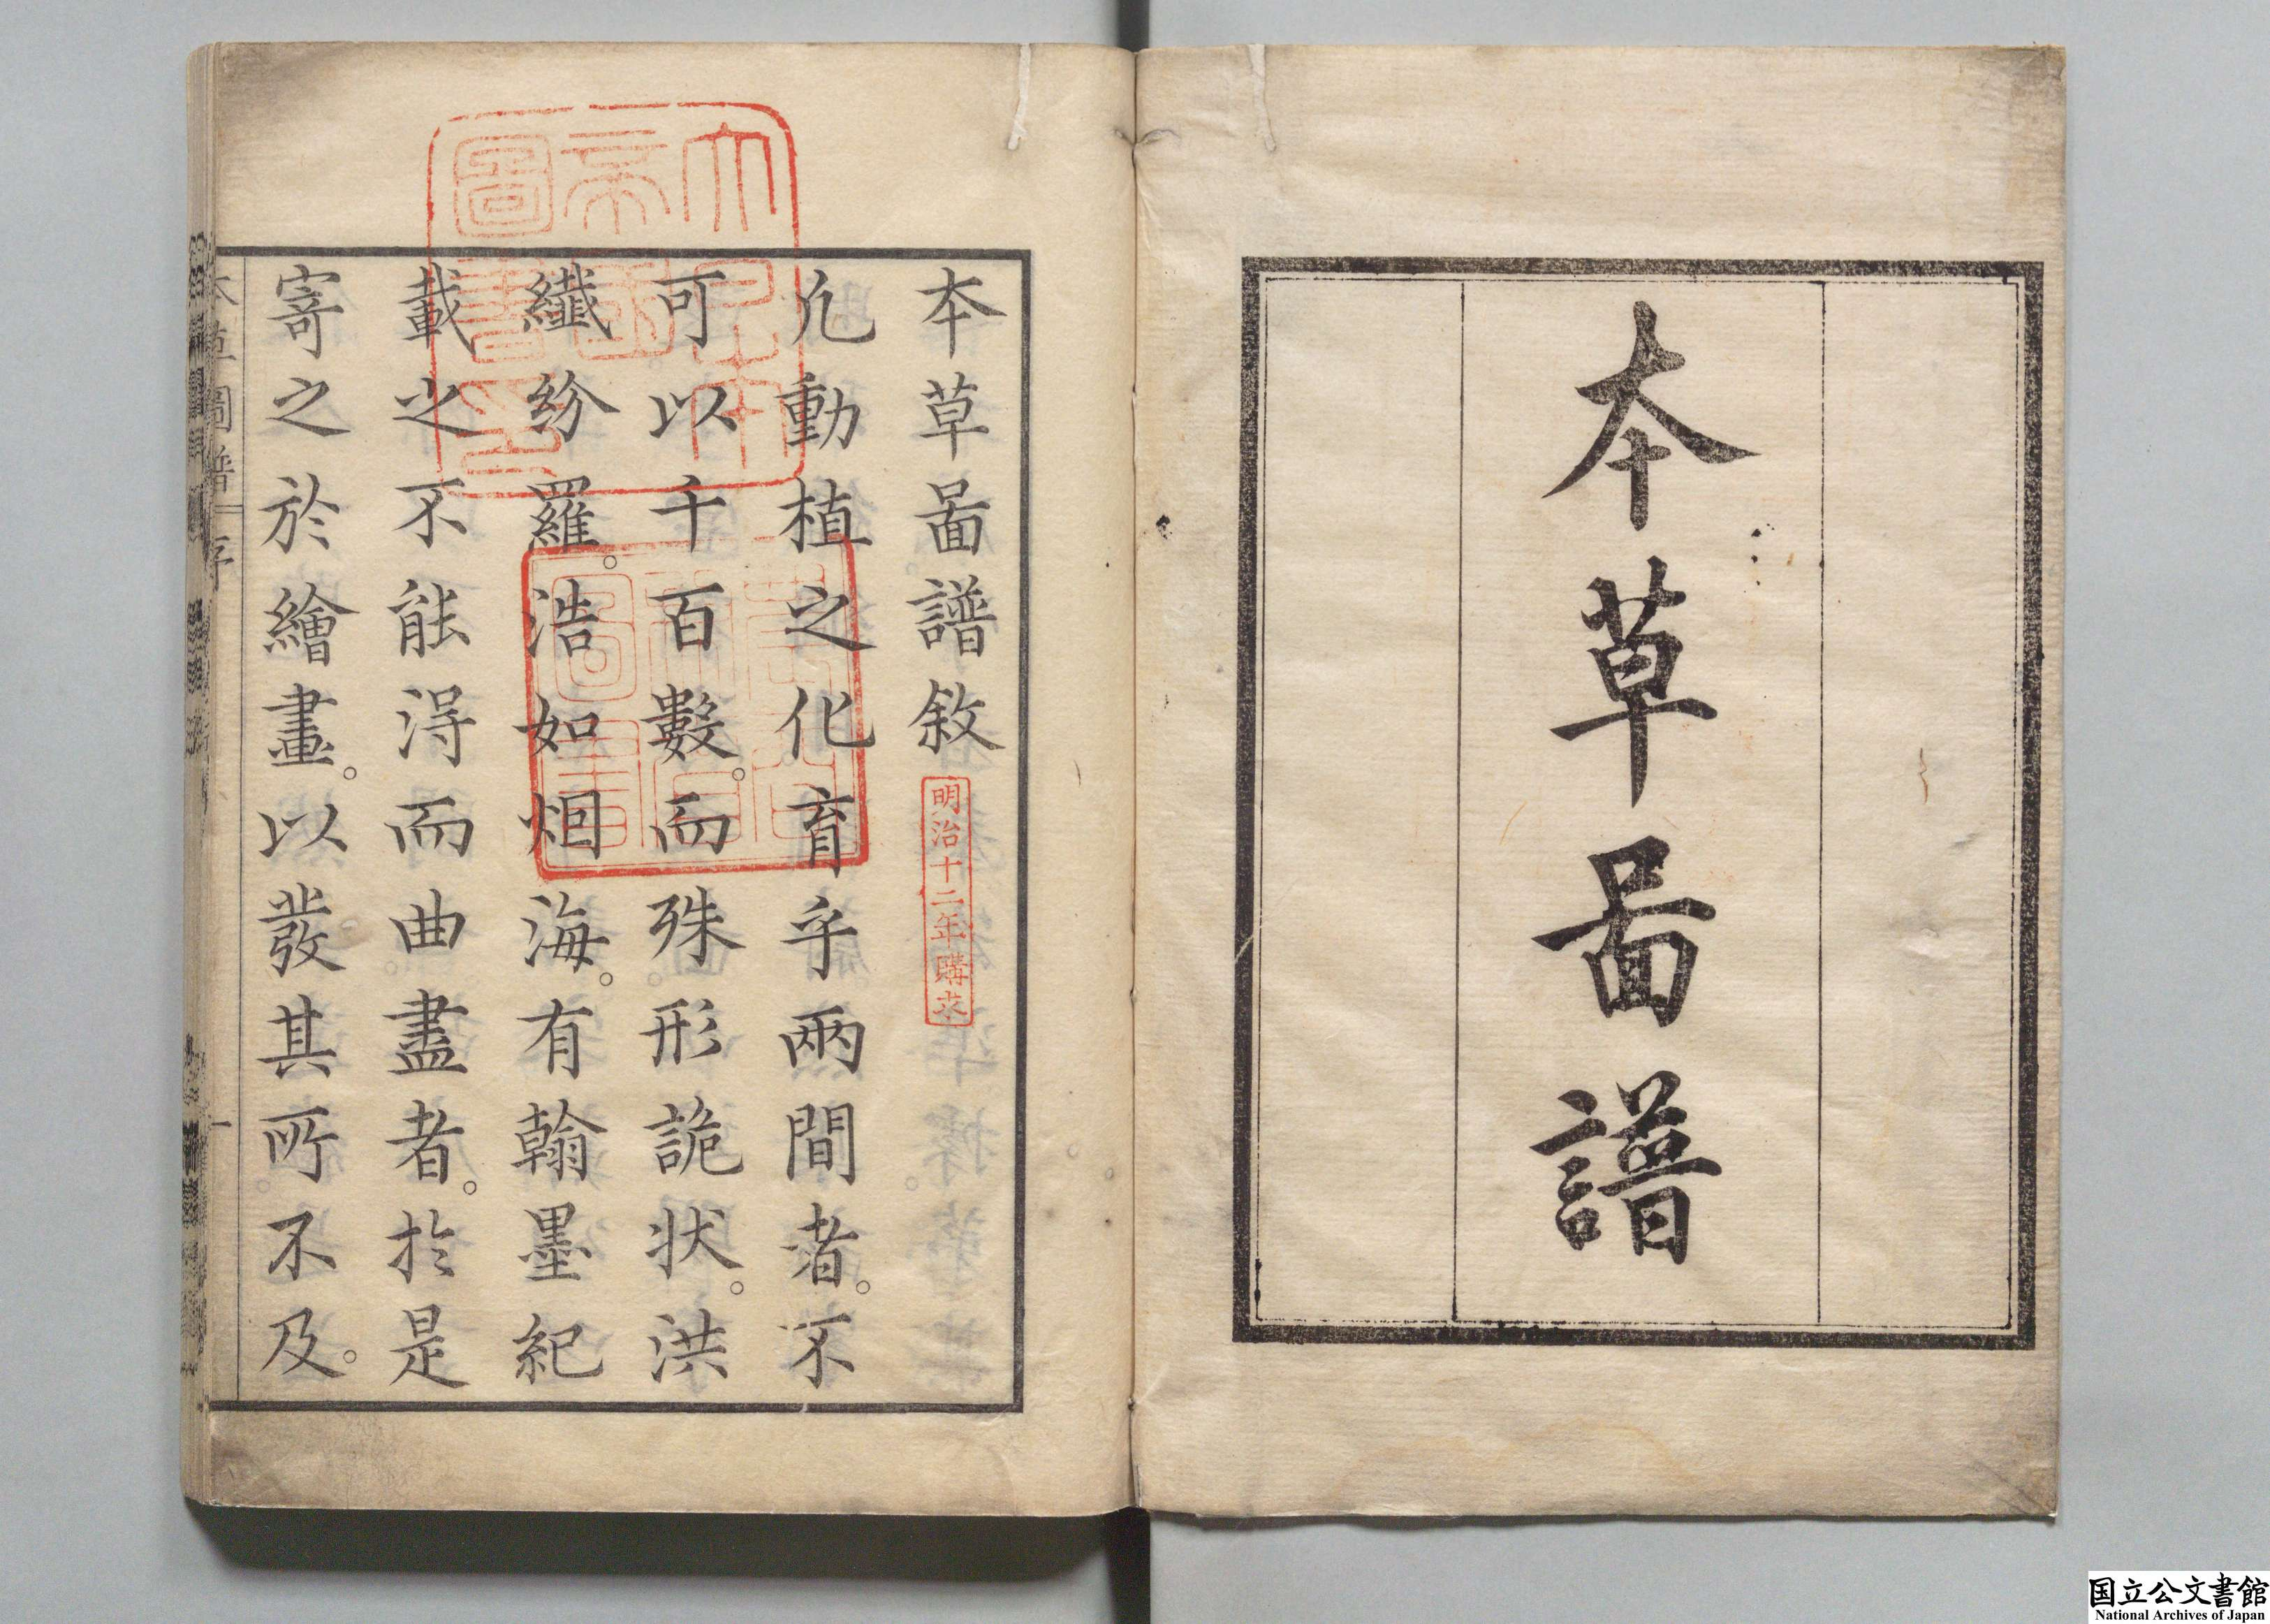 本草啚譜
本草啚譜敘
明治十二年購求
凢動植之化育乎兩間者。不
可以千百數。而殊形詭状。洪
纖紛羅。浩如烟海。有翰墨紀
載之不能淂而曲盡者。於是
寄之於繪畫。以發其所不及。
大日本帝國圖書印
本草圖譜 序 一
国立公文書館
National Archives of Japan